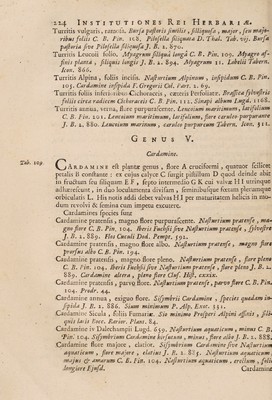 224 INSTITUTIONES REI HERBARIÆ.
Turritis vulgaris, ramosa. Bursa pastoris similis, siliquosa, major, seu majo-
ribus foliis C. B. Pin. 108. Pilosella siliquata D. Thal. Tab. 19. Bursa
pastoria sive Pilosella siliquosa J. B. 2. 870.
Turritis Leucoii folio. Myagrum siliquâ longâ C. B. Pin. 109. Myagro af-
finis planta, siliquis longis J. B. 2. 894. Myagrum II. Lobelii Tabern.
Icon. 866.
Turritis Alpina, foliis incisis. Nasturtium Alpinum, insipidum C. B. Pin.
105. Cardamine insipida F. Gregorii Col. Part. 2. 69.
Turritis foliis inferioribus Cichoraceis, cæteris Perfoliatæ. Brassica sylvestris
foliis circa radicem Cichoraceis C. B. Pin. 112. Sinapi album Lugd. 1168.
Turritis annua, verna, flore purpurascente. Leucoium maritimum, latifolium
C. B. Pin. 201. Leucoium maritimum, latifolium, flore cæruleo purpurante
J. B. 2. 880. Leucoium marinum, cæruleo purpureum Tabern. Icon. 311.
GENUS V.
Cardamine.
Tab. 109.
CARDAMINE est plantæ genus, flore A cruciformi, quatuor scilicet
petalis B constante: ex cujus calyce C surgit pistillum D quod deinde abit
in fructum seu siliquam E F, septo intermedio G K cui valvæ H I utrinque
adhærescunt, in duo loculamenta divisam, seminibusque fœtam plerumque
orbiculatis L. His notis addi debet valvas H I per maturitatem helicis in mo-
dum revolvi & semina cum impetu excuti.
Cardamines species sunt
Cardamine pratensis, magno flore purpurascente. Nasturtium pratense, ma-
gno flore C. B. Pin. 104. Iberis Fuchsii sive Nasturtium pratense, sylvestre
J. B. 2. 889. Flos Cuculi Dod. Pempt. 592.
Cardamine pratensis, magno flore albo. Nasturtium pratense, magno flore
prorsus albo C. B. Pin. 104.
Cardamine pratensis, magno flore pleno. Nasturtium pratense, flore pleno
C. B. Pin. 104. Iberis Fuchsii sive Nasturtium pratense, flore pleno J. B. 2.
889. Cardamine altera, pleno flore Cluf. Hist. cxxix.
Cardamine pratensis, parvo flore. Nasturtium pratense, parvo flore C. B. Pin.
104. Prodr. 44.
Cardamine annua, exiguo flore. Sisymbrii Cardamine, species quædam in-
sipida J. B. 2. 886. Sium minimum P. Alp. Exot. 331.
Cardamine Sicula, foliis Fumariæ. Sio minimo Prosperi Alpini affinis, sili-
quis latis Bocc. Rarior. Plant. 84.
Cardamine iv Dalechampii Lugd. 659. Nasturtium aquaticum, minus C. B.
Pin. 104. Sisymbrium Cardamine hirsutum, minus, flore albo J. B. 2. 888.
Cardamine flore majore, elatior. Sisymbrium Cardamine sive Nasturtium
aquaticum, flore majore, elatius J. B. 2. 885. Nasturtium aquaticum,
majus & amarum C. B. Pin. 104. Nasturtium aquaticum, erectum, folio
longiore Ejusd.
Cardamine